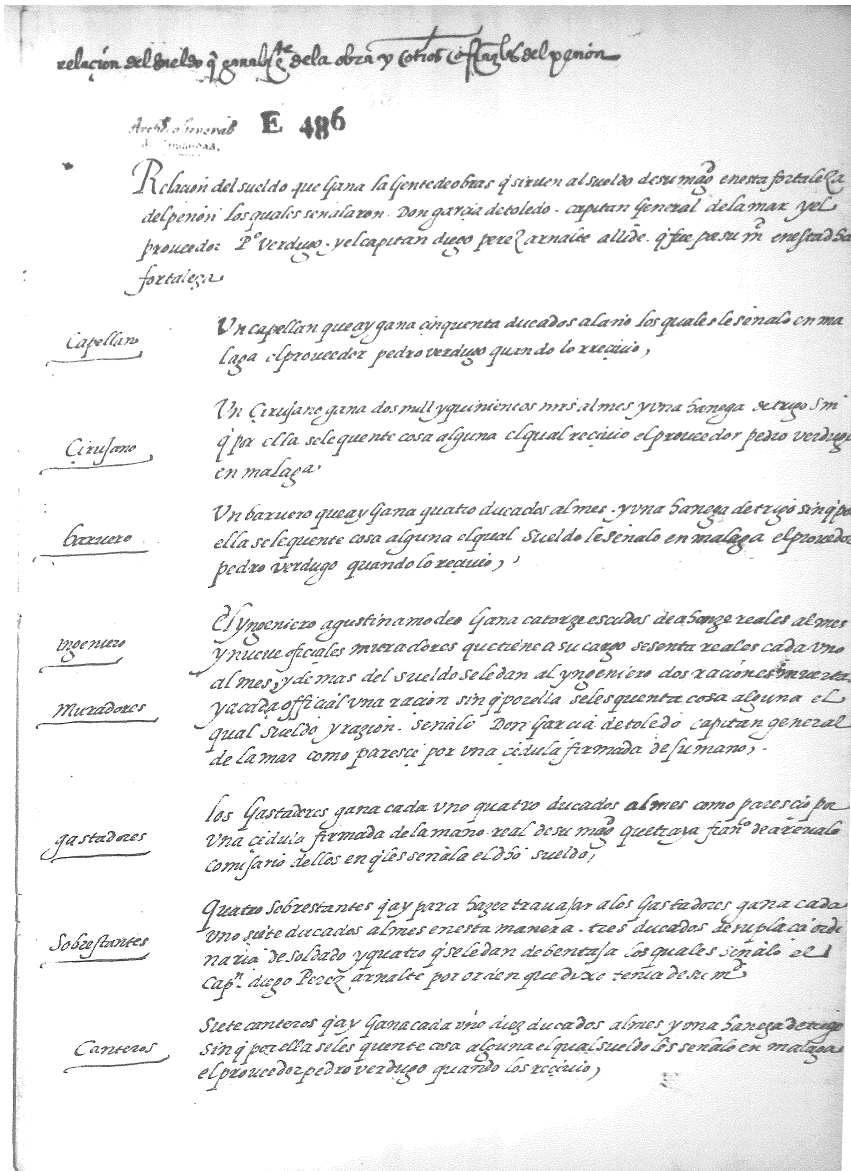 relaçion del sueldo q̄ gana la gẽte de la obra y otros ofiçiales del peñon
Archivo General
de Simancas.
E 486
Relaçion del sueldo que Gana la Gente de obras q̄ sirven al sueldo de su magd en esta fortaleza
del peñon los quales señalaron Don garcia de toledo. capitan General de la mar y el
proveedor Po Verdugo. y el capitan diego perez arnalte allde. q̄ fue por su md en esta dha
fortaleza
Capellano
Un capellan que ay gana cinquenta ducados al año los quales le señalo en ma
laga el proveedor pedro verdugo quando lo rreçiuio,
Çirujano
Un Çirujano gana dos mill y quinientos mrs al mes y una hanega de trigo sin
q̄ por ella se le quente cosa alguna el qual reçiuio el proveedor pedro verdugo
en malaga.
barvero
Un barvero que ay Gana quatro ducados al mes. y una hanega de trigo sin q̄ por
ella se le quente cosa alguna el qual sueldo le señalo en malaga el proveedor
pedro verdugo quando lo reçiuio,
yngeniero
El yngeniero agustin amodeo Gana catorze escudos de a honze reales al mes
y nueve ofiçiales muradores que tiene a su cargo sesenta reales cada uno
al mes, y demas del sueldo se le dan al yngeniero dos raciones
Muradores
y a cada offiçial una raçion sin q̄ por ella se les quenta cosa alguna el
qual sueldo y razion. señalo Don Garcia de toledo capitan general
de la mar como paresçe por una çedula firmada de su mano,.
gastadores
los Gastadores gana cada uno quatro ducados al mes como paresçio por
una çedula firmada de la mano real de su magd que traya franco de arevalo
comisario dellos en q̄ les señala el dho sueldo,
Sobrestantes
Quatro sobrestantes q̄ ay para hazer travajar a los Gastadores gana cada
uno siete ducados al mes en esta manera. tres ducados de su plaça ordi
naria de soldado y quatro q̄ se le dan de bentaja los quales señalo el
Capn. diego Perez arnalte por orden que dixo tenia de su md
Canteros
Siete canteros q̄ ay Gana cada uno diez ducados al mes y una hanega de trigo
sin q̄ por ella se les quente cosa alguna el qual sueldo les señalo en malaga
el proveedor pedro verdugo quando los reçiuio,